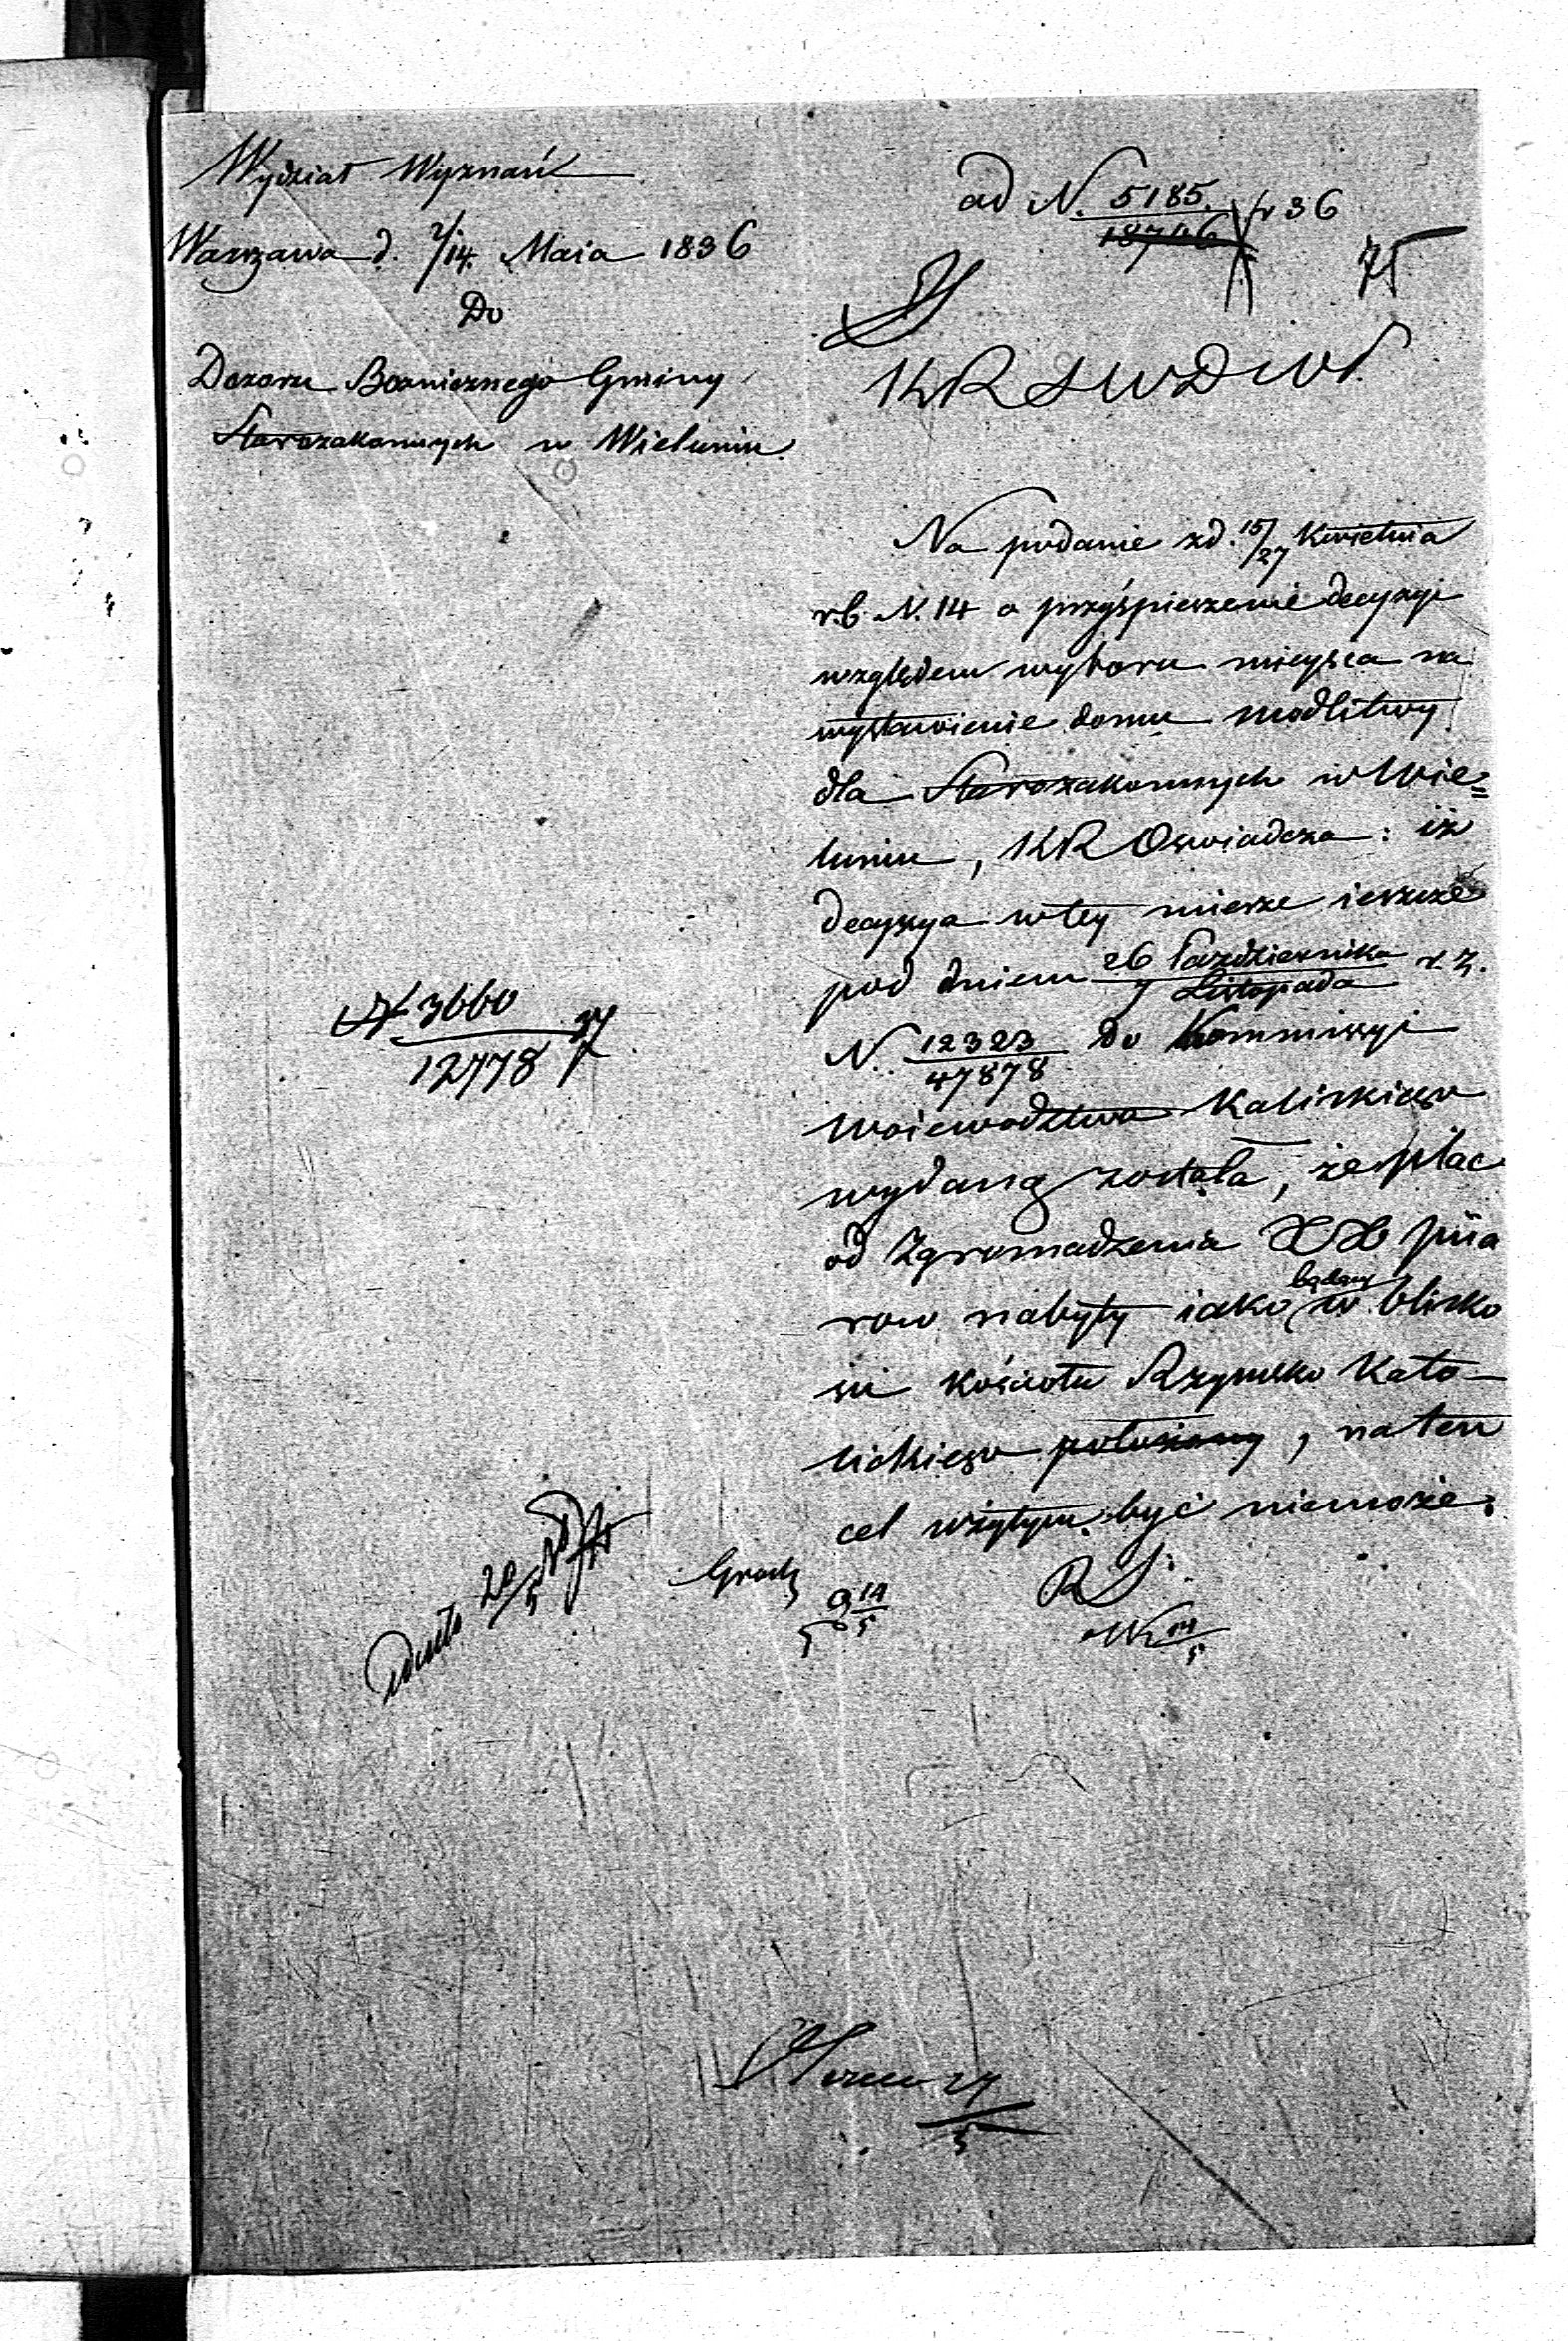 Wydział Wyznań
Warszawa d. 2/14. Maia 1836
Do
Dozoru Bożniczego Gminy
Starozakonnych w Wieluniu.
ad N. 5185. / 18706 r 36
75
KRSWDiOP.
Na podanie zd. 15/27 Kwietnia
r.b N. 14 o przyśpieszenie decyzyi
względem wyboru mieysca na
wystawienie domu modlitwy
dla Starozakonnych w Wie=
luniu, KR Oswiadcza: iż
decyzya w tey mierze ieszcze
pod dniem 26 Października / 7 Listopada r. z.
N. 12323 / 47878 do Kommissyi
Woiewodztwa Kaliskiego
wydaną została, że plac
od Zgromadzenia XX Piia
row nabyty iako będący w blisko
ści kościoła Rzymsko Kato-
lickiego położony, na ten
cel użytym być niemoże.
3660 / 12778
14/5
14/5
20/5
27/5